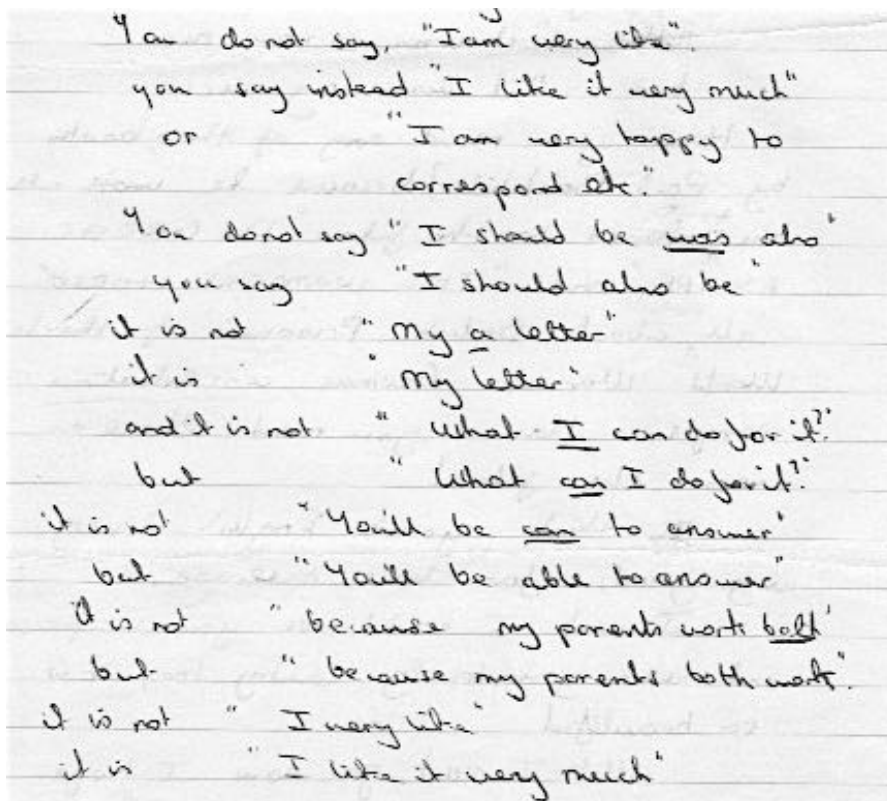 You do not say, "I am very like"
you say instead "I like it very much"
or "I am very happy to
correspond etc."
You do not say "I should be was also"
you say "I should also be"
it is not "My a letter"
it is "My letter"
and it is not "What I can do for it?"
but "What can I do for it?"
it is not "You'll be can to answer"
but "You'll be able to answer"
it is not "because my parents work both"
but "because my parents both work".
it is not "I very like"
it is "I like it very much"